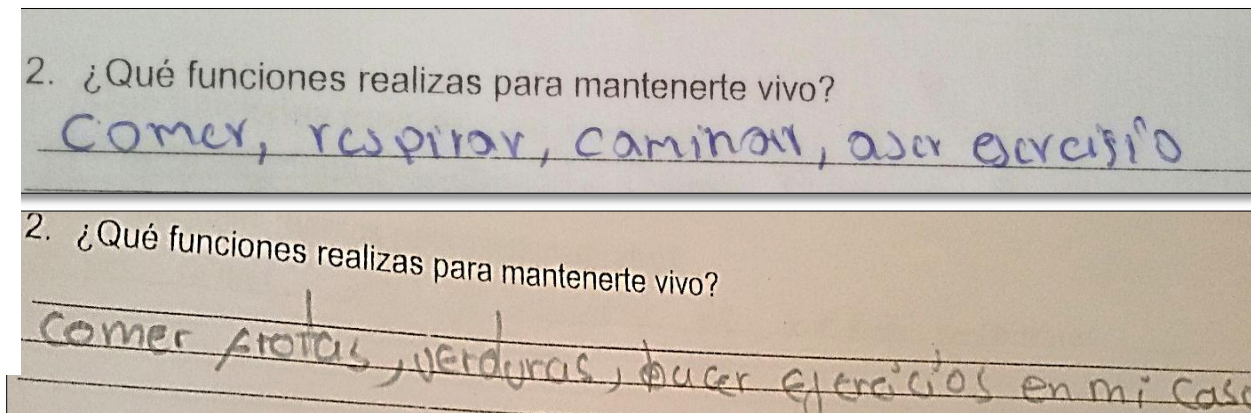 2. ¿Qué funciones realizas para mantenerte vivo?
Comer, respirar, caminar, aser ejercisio
2. ¿Qué funciones realizas para mantenerte vivo?
comer frotas, verduras, hacer ejercicios en mi casa